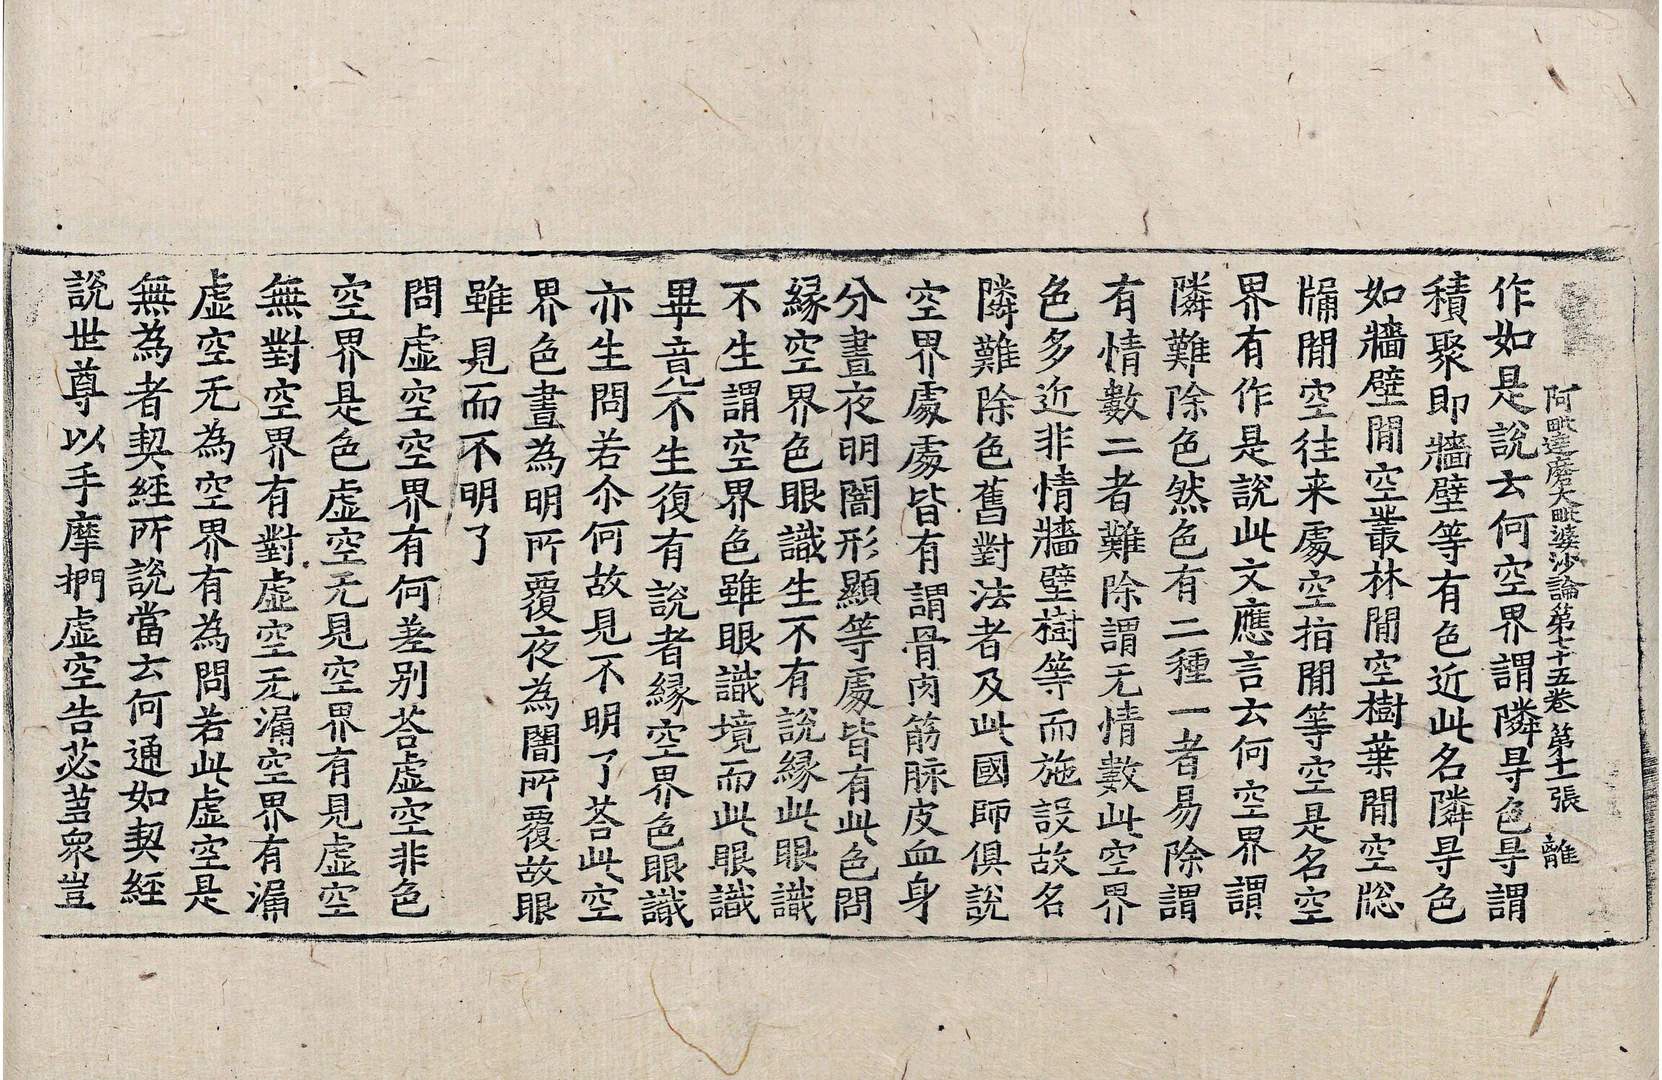 阿毗達磨大毗婆沙論第七十五卷 第十一張 離
作如是說云何空界謂隣㝵色㝵謂
積聚即牆壁等有色近此名隣㝵色
如牆壁閒空叢林閒空樹葉閒空窓
牖閒空往来處空指閒等空是名空
界有作是說此文應言云何空界謂
隣難除色然色有二種一者易除謂
有情數二者難除謂无情數此空界
色多近非情牆壁樹等而施設故名
隣難除色舊對法者及此國師俱說
空界處處皆有謂骨肉筋脉皮血身
分晝夜明闇形顯等處皆有此色問
緣空界色眼識生不有說緣此眼識
不生謂空界色雖眼識境而此眼識
畢竟不生復有說者緣空界色眼識
亦生問若尒何故見不明了荅此空
界色晝為明所覆夜為闇所覆故眼
雖見而不明了
問虛空空界有何差別荅虛空非色
空界是色虛空无見空界有見虛空
無對空界有對虛空无漏空界有漏
虛空无為空界有為問若此虛空是
無為者契經所說當云何通如契經
說世尊以手摩捫虛空告苾芻衆豈